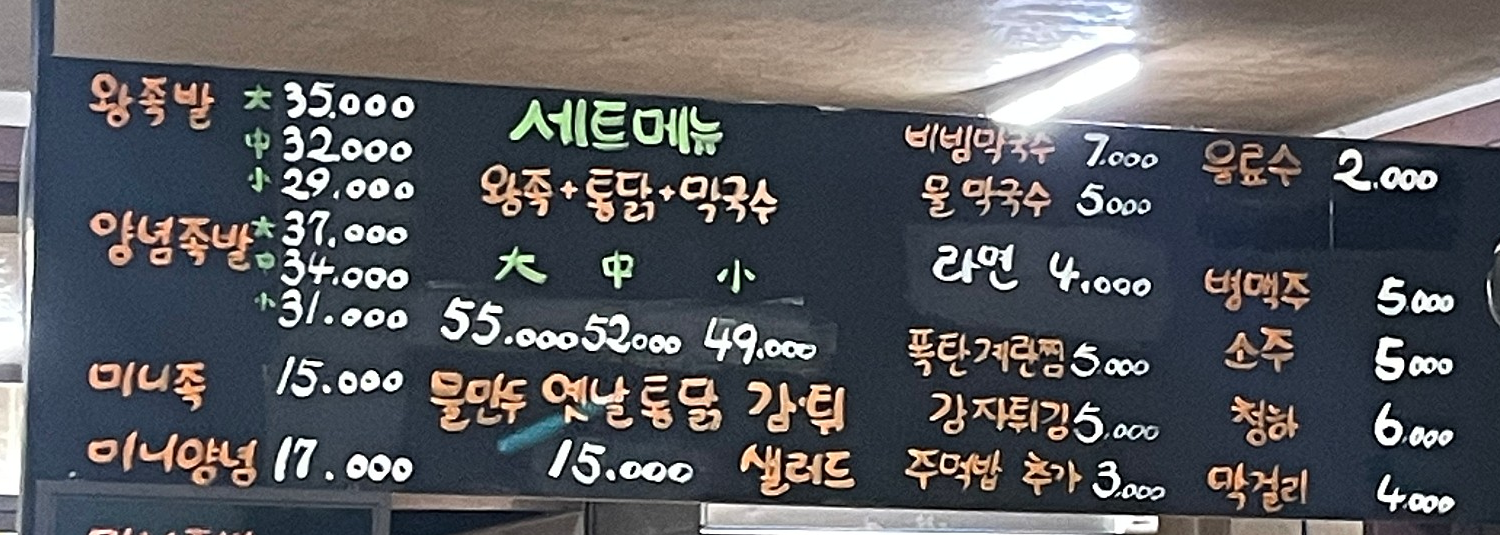 왕족발 大 35.000
中 32.000
小 29.000
양념족발 大 37.000
中 34.000
小 31.000
미니족 15.000
미니양념 17.000
세트메뉴
왕족+통닭+막국수
大 中 小
55.000 52000 49.000
물만두 옛날통닭 감·튀
15.000 샐러드
비빔막국수 7.000
물막국수 5000
라면 4.000
폭탄계란찜 5.000
감자튀김 5.000
주먹밥 추가 3.000
음료수 2.000
병맥주 5.000
소주 5000
청하 6.000
막걸리 4.000